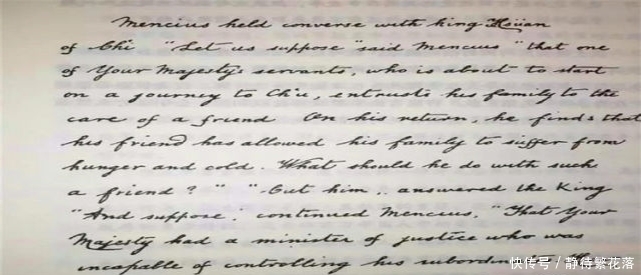 Mencius held converse with king Hsüan
of Chi "Let us suppose" said Mencius "that one
of Your Majesty's servants, who is about to start
on a journey to Ch'u, entrusts his family to the
care of a friend On his return, he finds that
his friend has allowed his family to suffer from
hunger and cold. What should he do with such
a friend?" "Cut him", answered the King
"And suppose", continued Mencius, "That Your
Majesty had a minister of justice who was
incapable of controlling his
快传号/静待繁花落